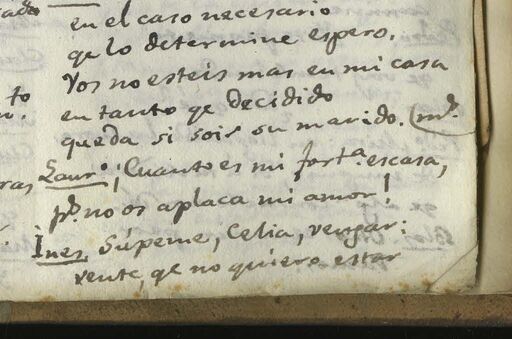 en el caso necesario
qe lo determine espero.
Vos no esteis mas en mi casa
en tanto qe decidido
queda si sois su marido.
to
ras Laurº. ¡Cuanto es mi forta. escasa,
ps. no os aplaca mi amor!
Ines Súpeme, Celia, vengar:
vente, qe no quiero estar